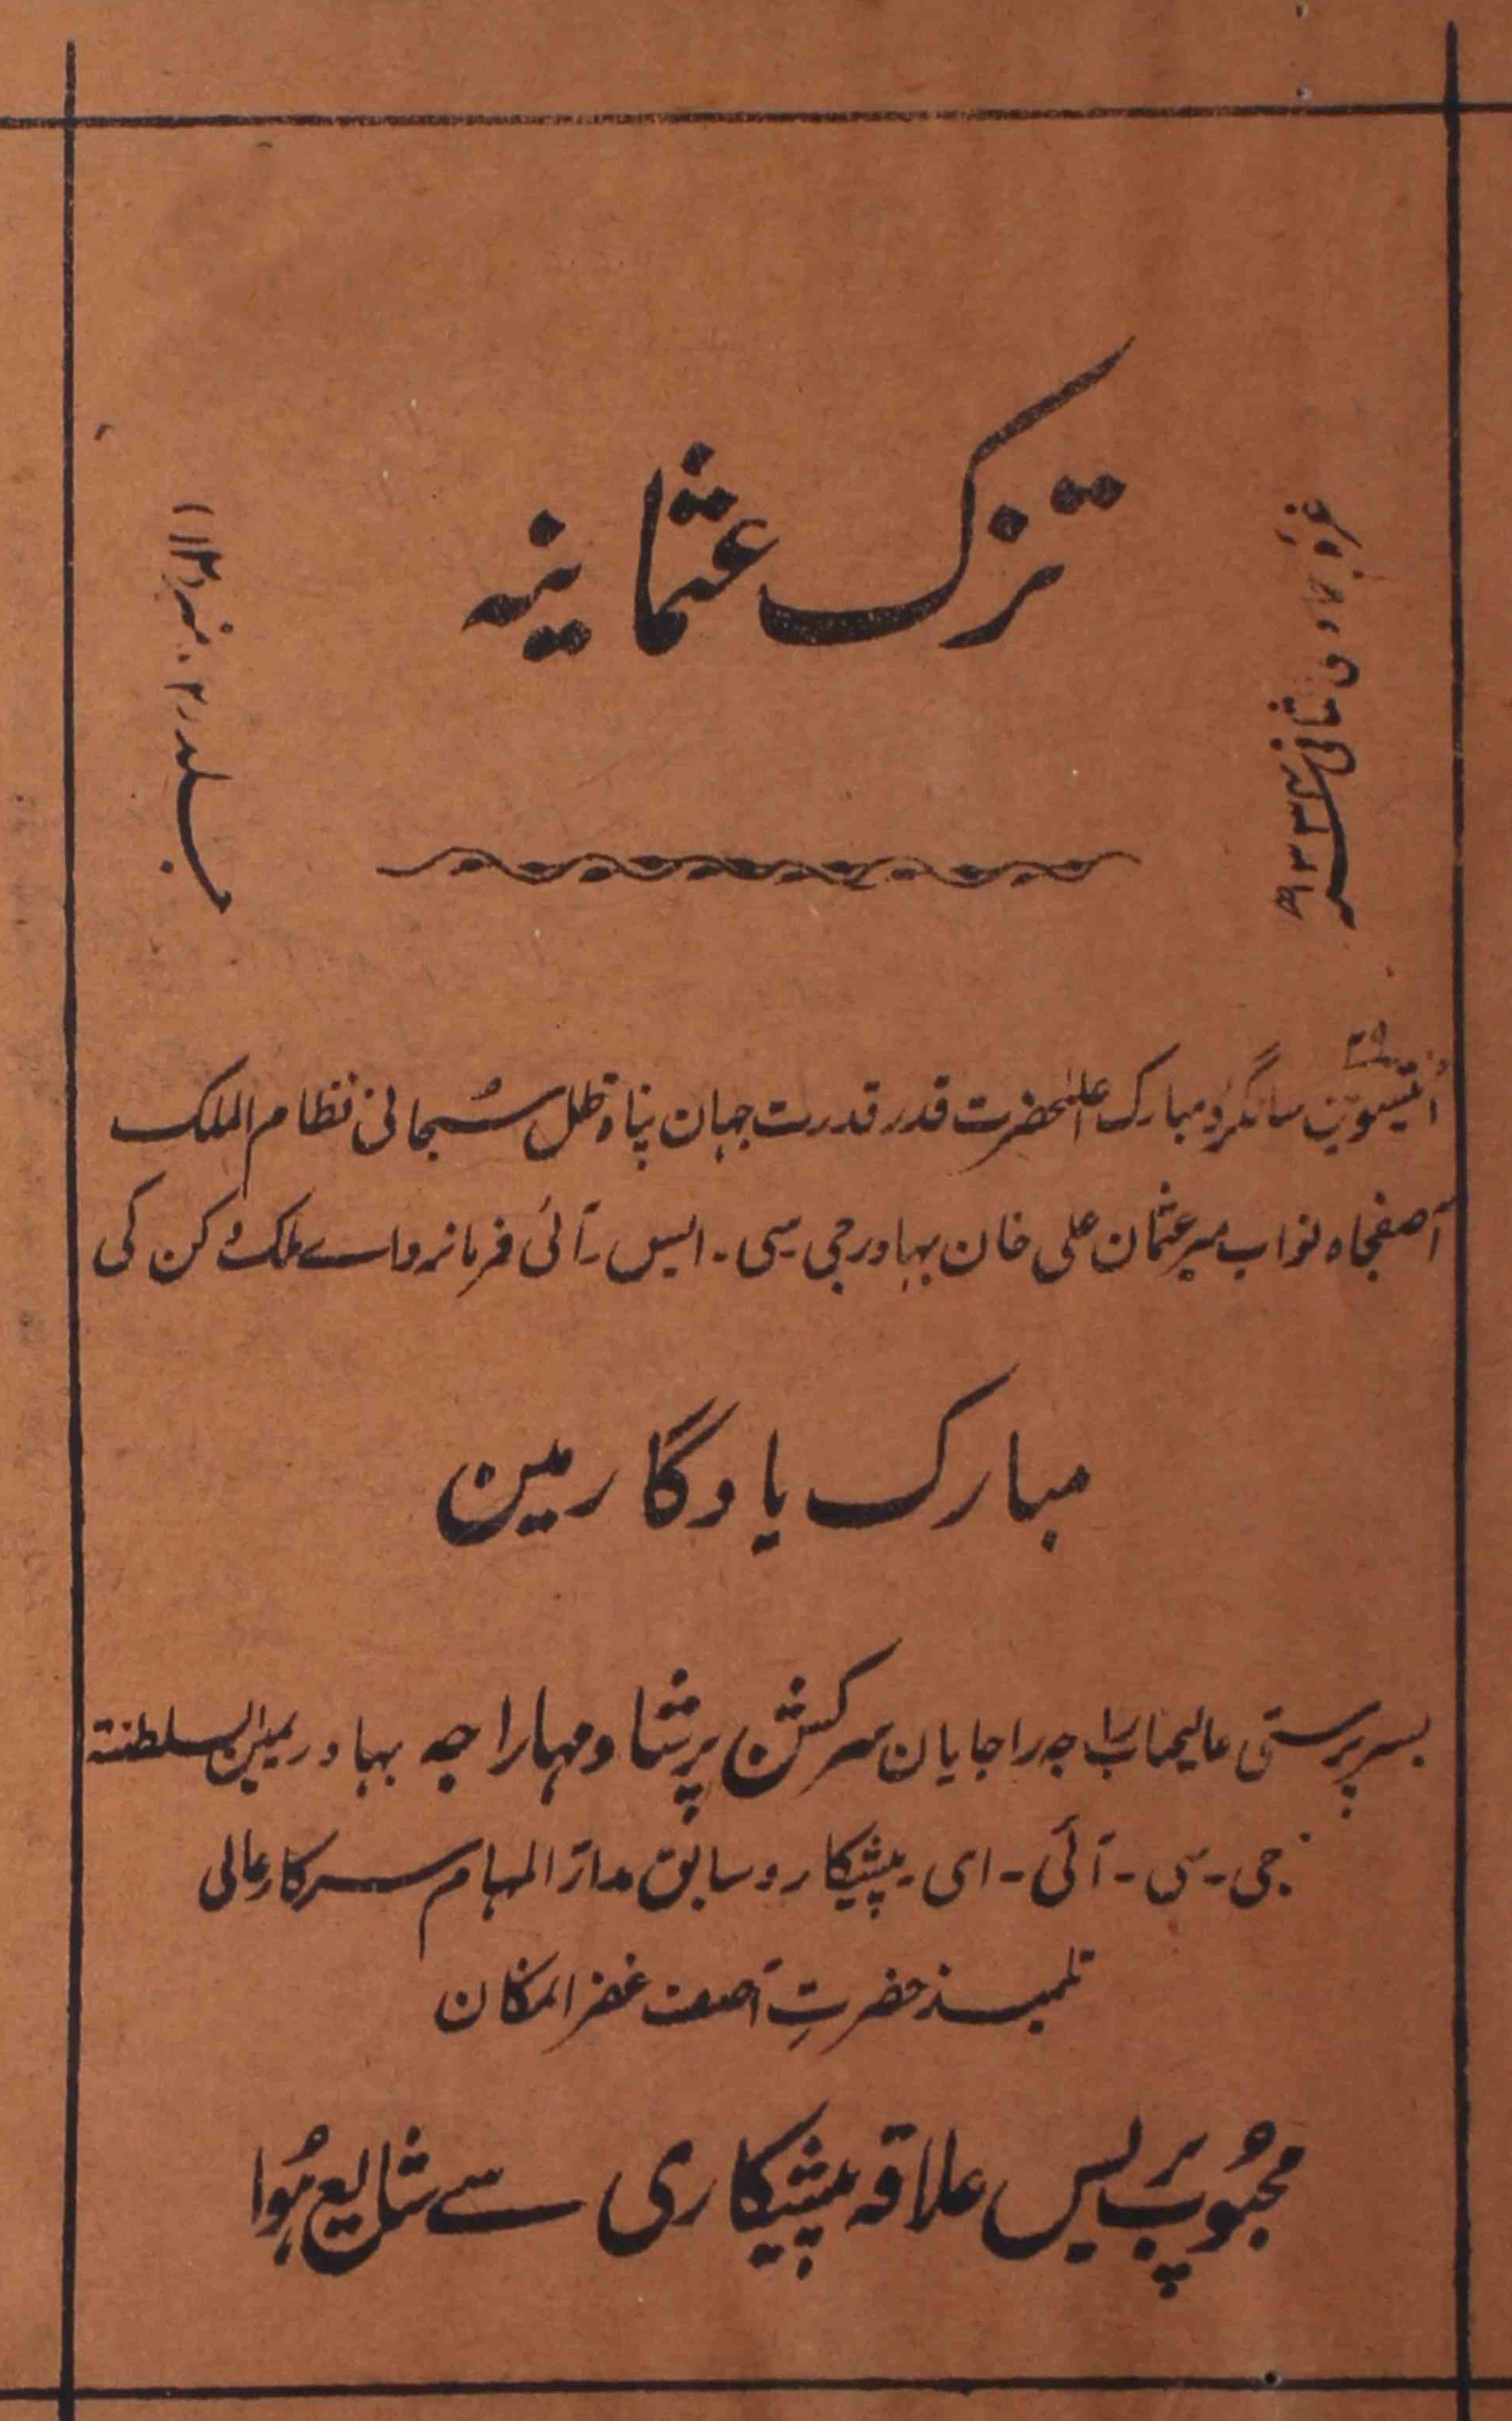 تزک عثمانیہ
جلد ۲ نمبر (۱۲)
انتیسوین سالگرہ مبارک اعلیٰحضرت قدر قدرت جہان پناہ ظل سبحانی نظام الملک
آصفجاہ نواب میر عثمان علی خان بہادر جی سی - ایس - آئی فرمانرواے ملک دکن کی
مبارک یادگار مین
بسرپرستی عالیجناب راجہ راجایان سرکشن پرشاد مہاراجہ بہادر یمین السلطنتہ
جی - سی - آئی - ای - پیشکار و سابق مدار المہام سرکار عالی
تلمیذ حضرتِ آصف غفر المکان
محبُوب پریس علاقہ پیشکاری سے شایع ہُوا